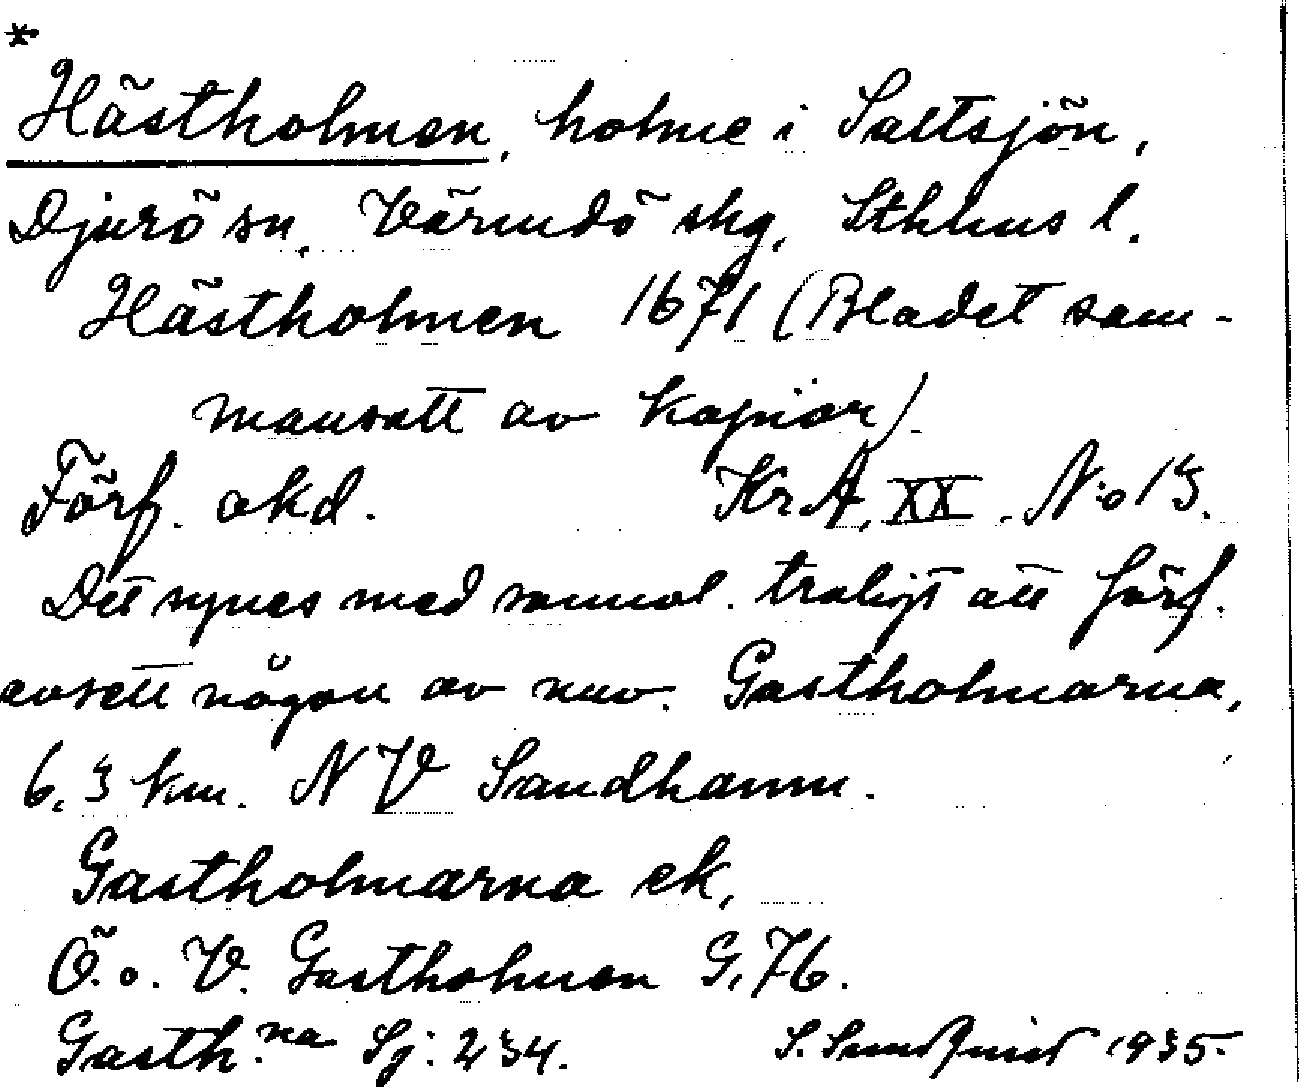 *
Hästholmen, holme i Saltsjön,
Djurö sn, Värmdö skg, Sthlms l.
Hästholmen 1671 (Bladet sam-
mansatt av kopior).
Förf. okd. Kr.A, XX. N:o 13.
Det synes med sannol. troligt att förf.
avsett någon av nuv. Gastholmarna,
6,3 km. NV Sandhamn.
Gastholmarna ek,
Ö. o. V. Gastholmen G, 76.
Gasth:na Sj: 234. S. Sundquist 1935.